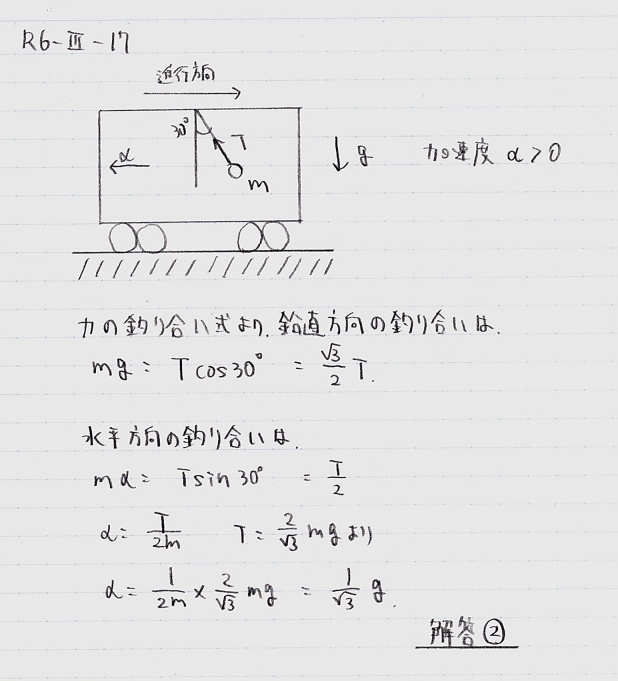 R6-Ⅲ-17
進行方向
30°
T
α
m
g
加速度 α>0
力の釣り合い式より、鉛直方向の釣り合いは、
mg = Tcos30° = √3/2 T.
水平方向の釣り合いは、
mα = Tsin30° = T/2
α = T/2m T = 2/√3 mgより
α = 1/2m × 2/√3 mg = 1/√3 g.
解答②